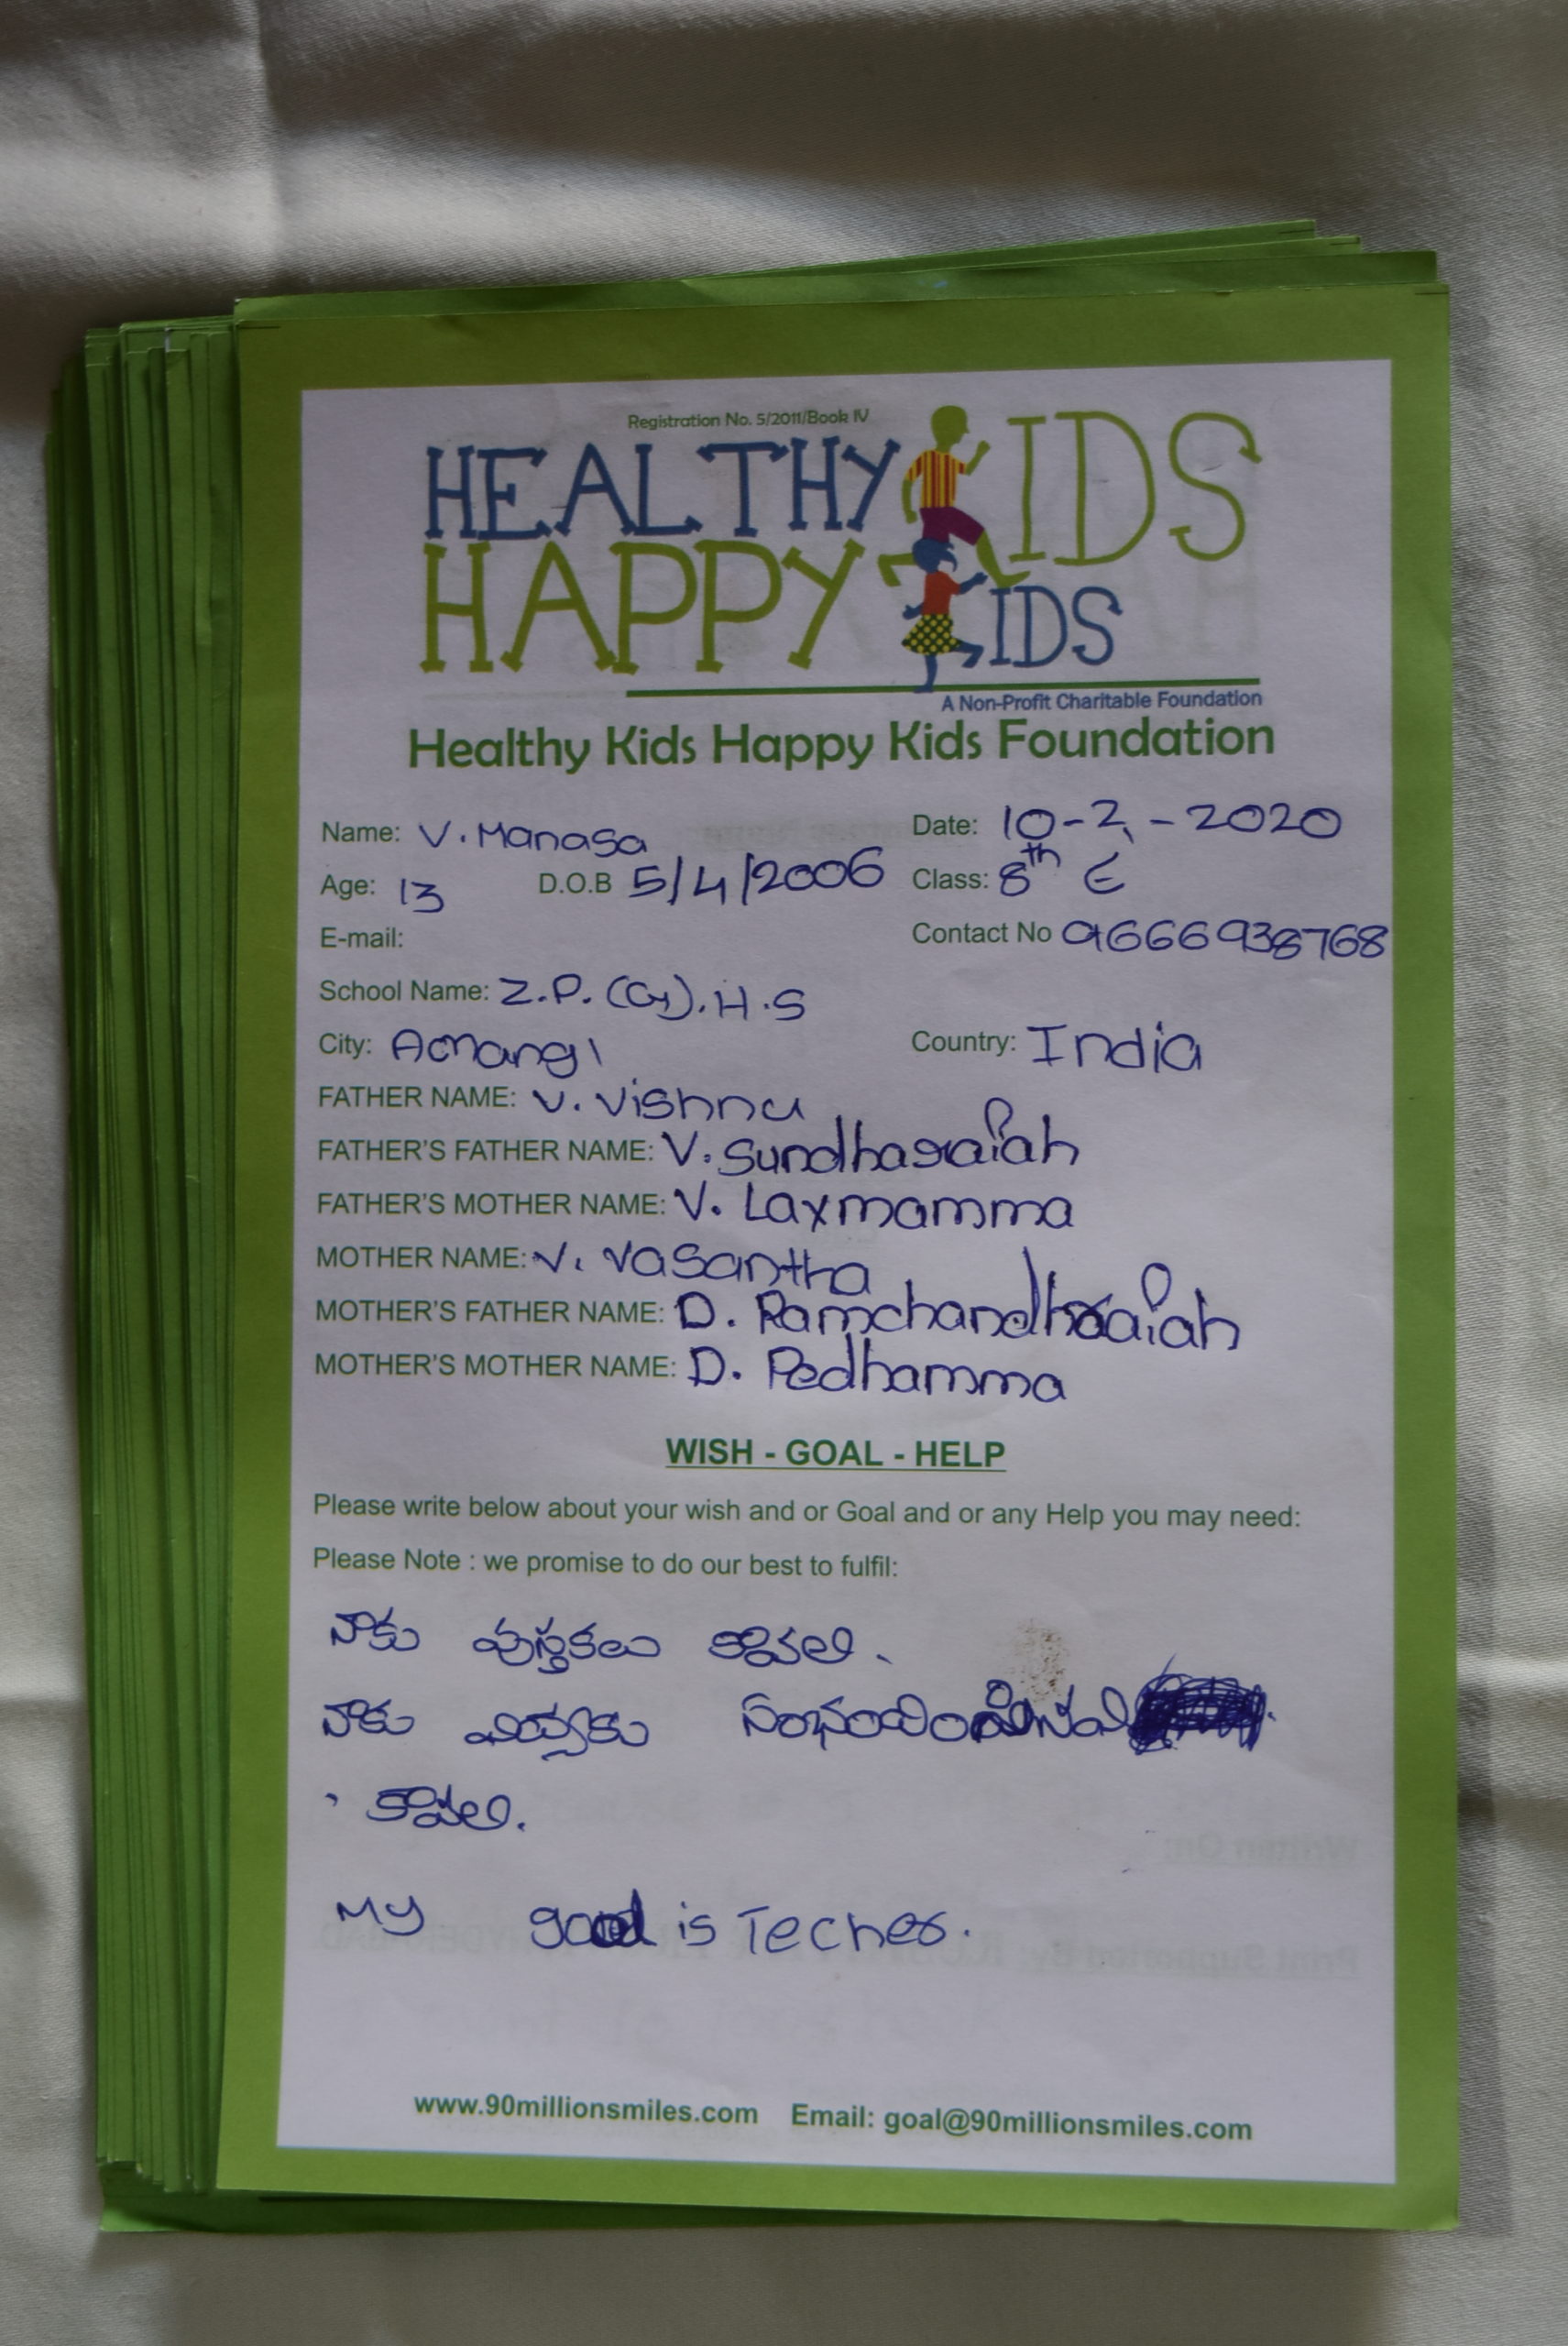 Registration No. 5/2011/Book IV
HEALTHY KIDS
HAPPY KIDS
A Non-Profit Charitable Foundation
Healthy Kids Happy Kids Foundation
Name: V. Manasa Date: 10-2-2020
Age: 13 D.O.B 5/4/2006 Class: 8th E
E-mail: Contact No 9666938768
School Name: Z.P.(G).H.S
City: Amangl Country: India
FATHER NAME: V. Vishnu
FATHER'S FATHER NAME: V. Sundharaiah
FATHER'S MOTHER NAME: V. Laxmamma
MOTHER NAME: V. Vasantha
MOTHER'S FATHER NAME: D. Ramchandhraiah
MOTHER'S MOTHER NAME: D. Pedhamma
WISH - GOAL - HELP
Please write below about your wish and or Goal and or any Help you may need:
Please Note : we promise to do our best to fulfil:
నాకు పుస్తకలు కావలి.
నాకు
కావలి.
My is Techer.
www.90millionsmiles.com Email: goal@90millionsmiles.com